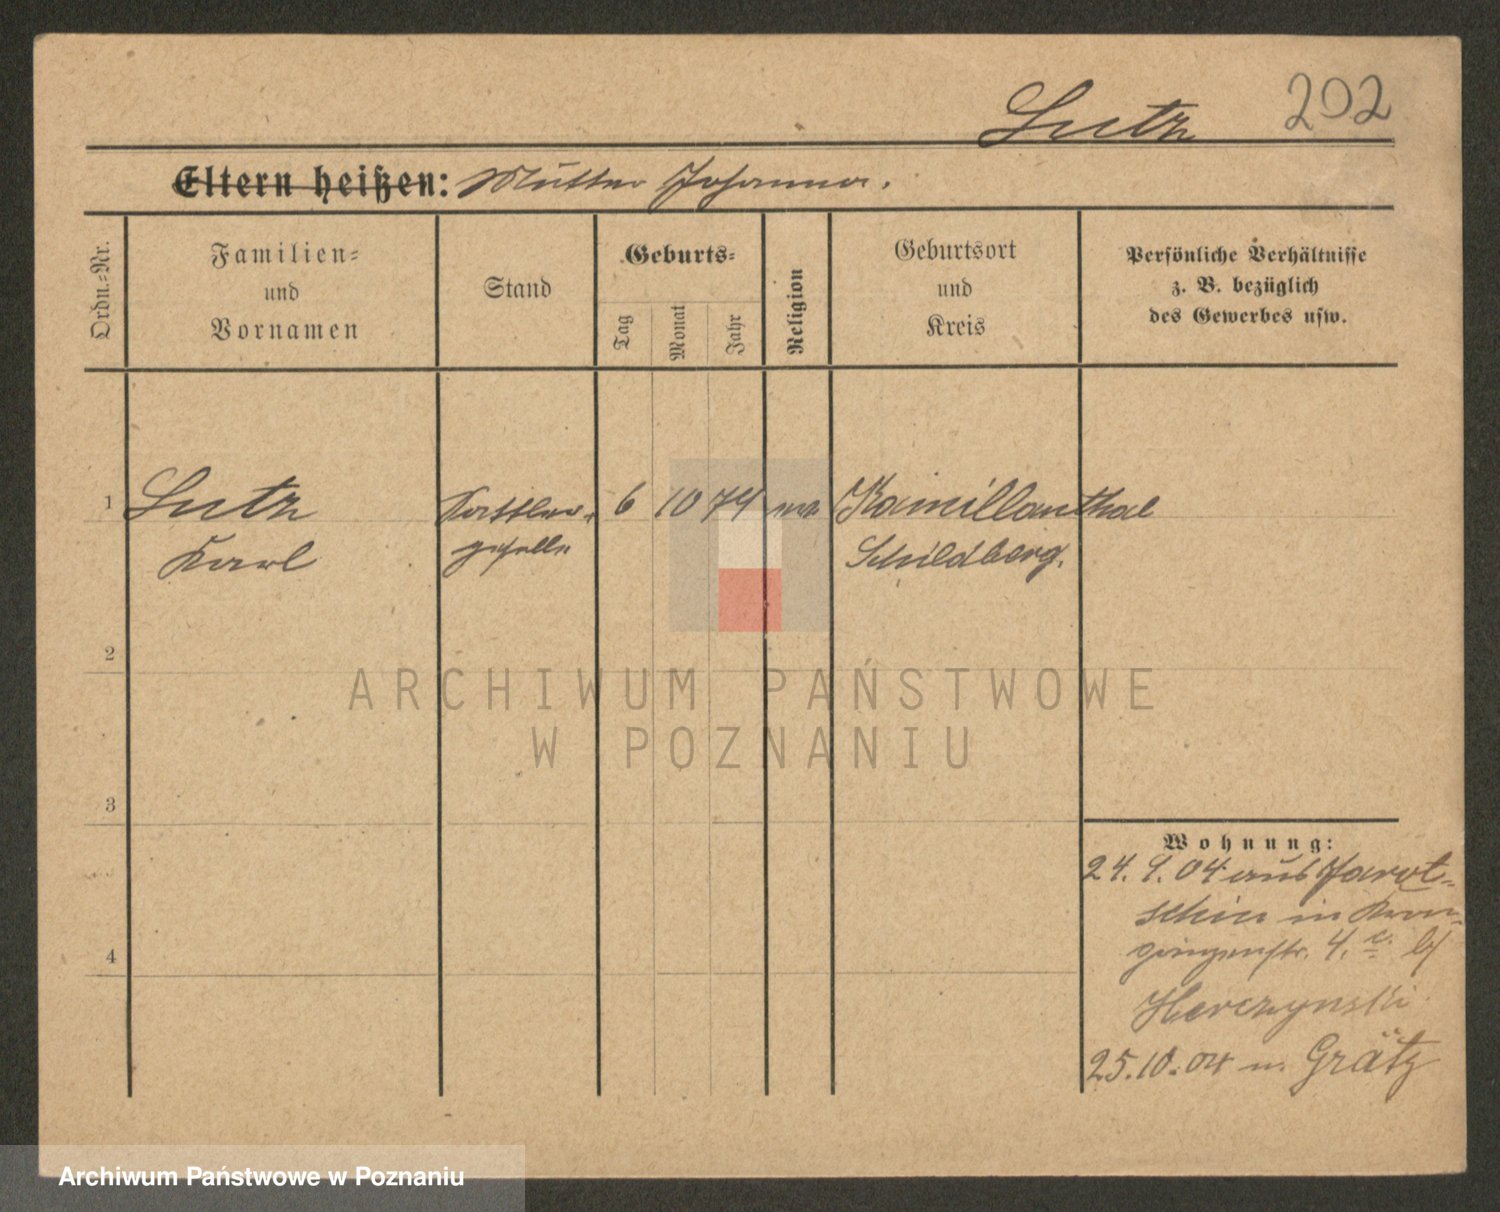 Lutz 202
Eltern heißen: Mutter Johanna.
Ordn.-Nr.
Familien-
und
Vornamen
Stand
Geburts-
Tag
Monat
Jahr
Religion
Geburtsort
und
Kreis
Persönliche Verhältnisse
z. B. bezüglich
des Gewerbes usw.
1 Lutz Sattler- 6 10 74 Kamillenthal
Karl geselle Schildberg.
2
ARCHIWUM PAŃSTWOWE
W POZNANIU
3
4
Wohnung:
24. 9. 04 aus Jarot-
schin in Kron-
prinzenstr. 4. c. b/
Herczynski
25.10.04 n. Grätz
Archiwum Państwowe w Poznaniu